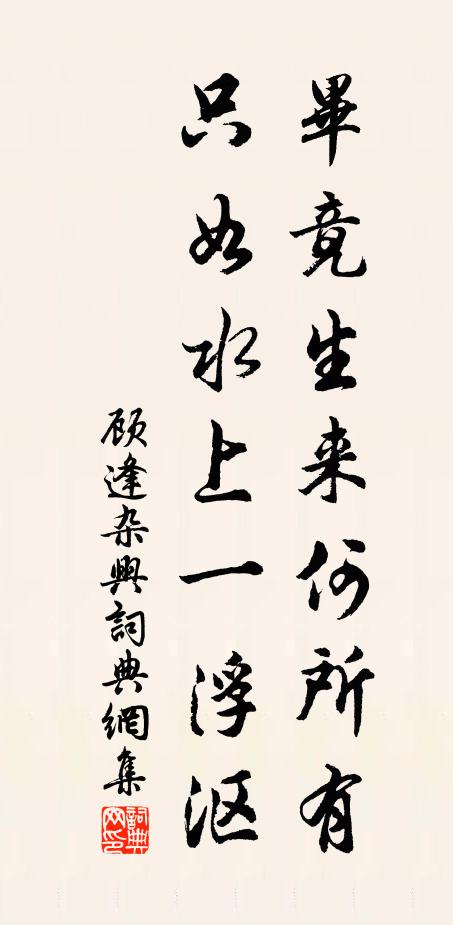 畢竟生来何所有
只如水上一浮沤
顾逢杂興詞典網集
詞典网印